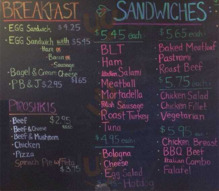 BREAKFAST
- EGG Sandwich $4.25
- EGG Sandwich with $5.95
Ham
Bacon
Sausage
- Bagel & Cream Cheese
- PB & J $2.95
PIROSHKIS
- Beef
- Beef & Cheese
- Beef & Mushroom
- Chicken
- Pizza
Spinach
SANDWICHES
$5.45 each
BLT
Ham
Salami
Meatball
Mortadella
Sausage
Roast Turkey
Tuna
$4.95
Bologna
Cheese
Egg Salad
Hotdog
$5.65 each
Baked Meatloaf
Pastrami
Roast Beef
$5.75
Chicken Salad
Chicken Fillet
Vegetarian
$5.95
Chicken Breast
BBQ Beef
Italian Combo
Falafel